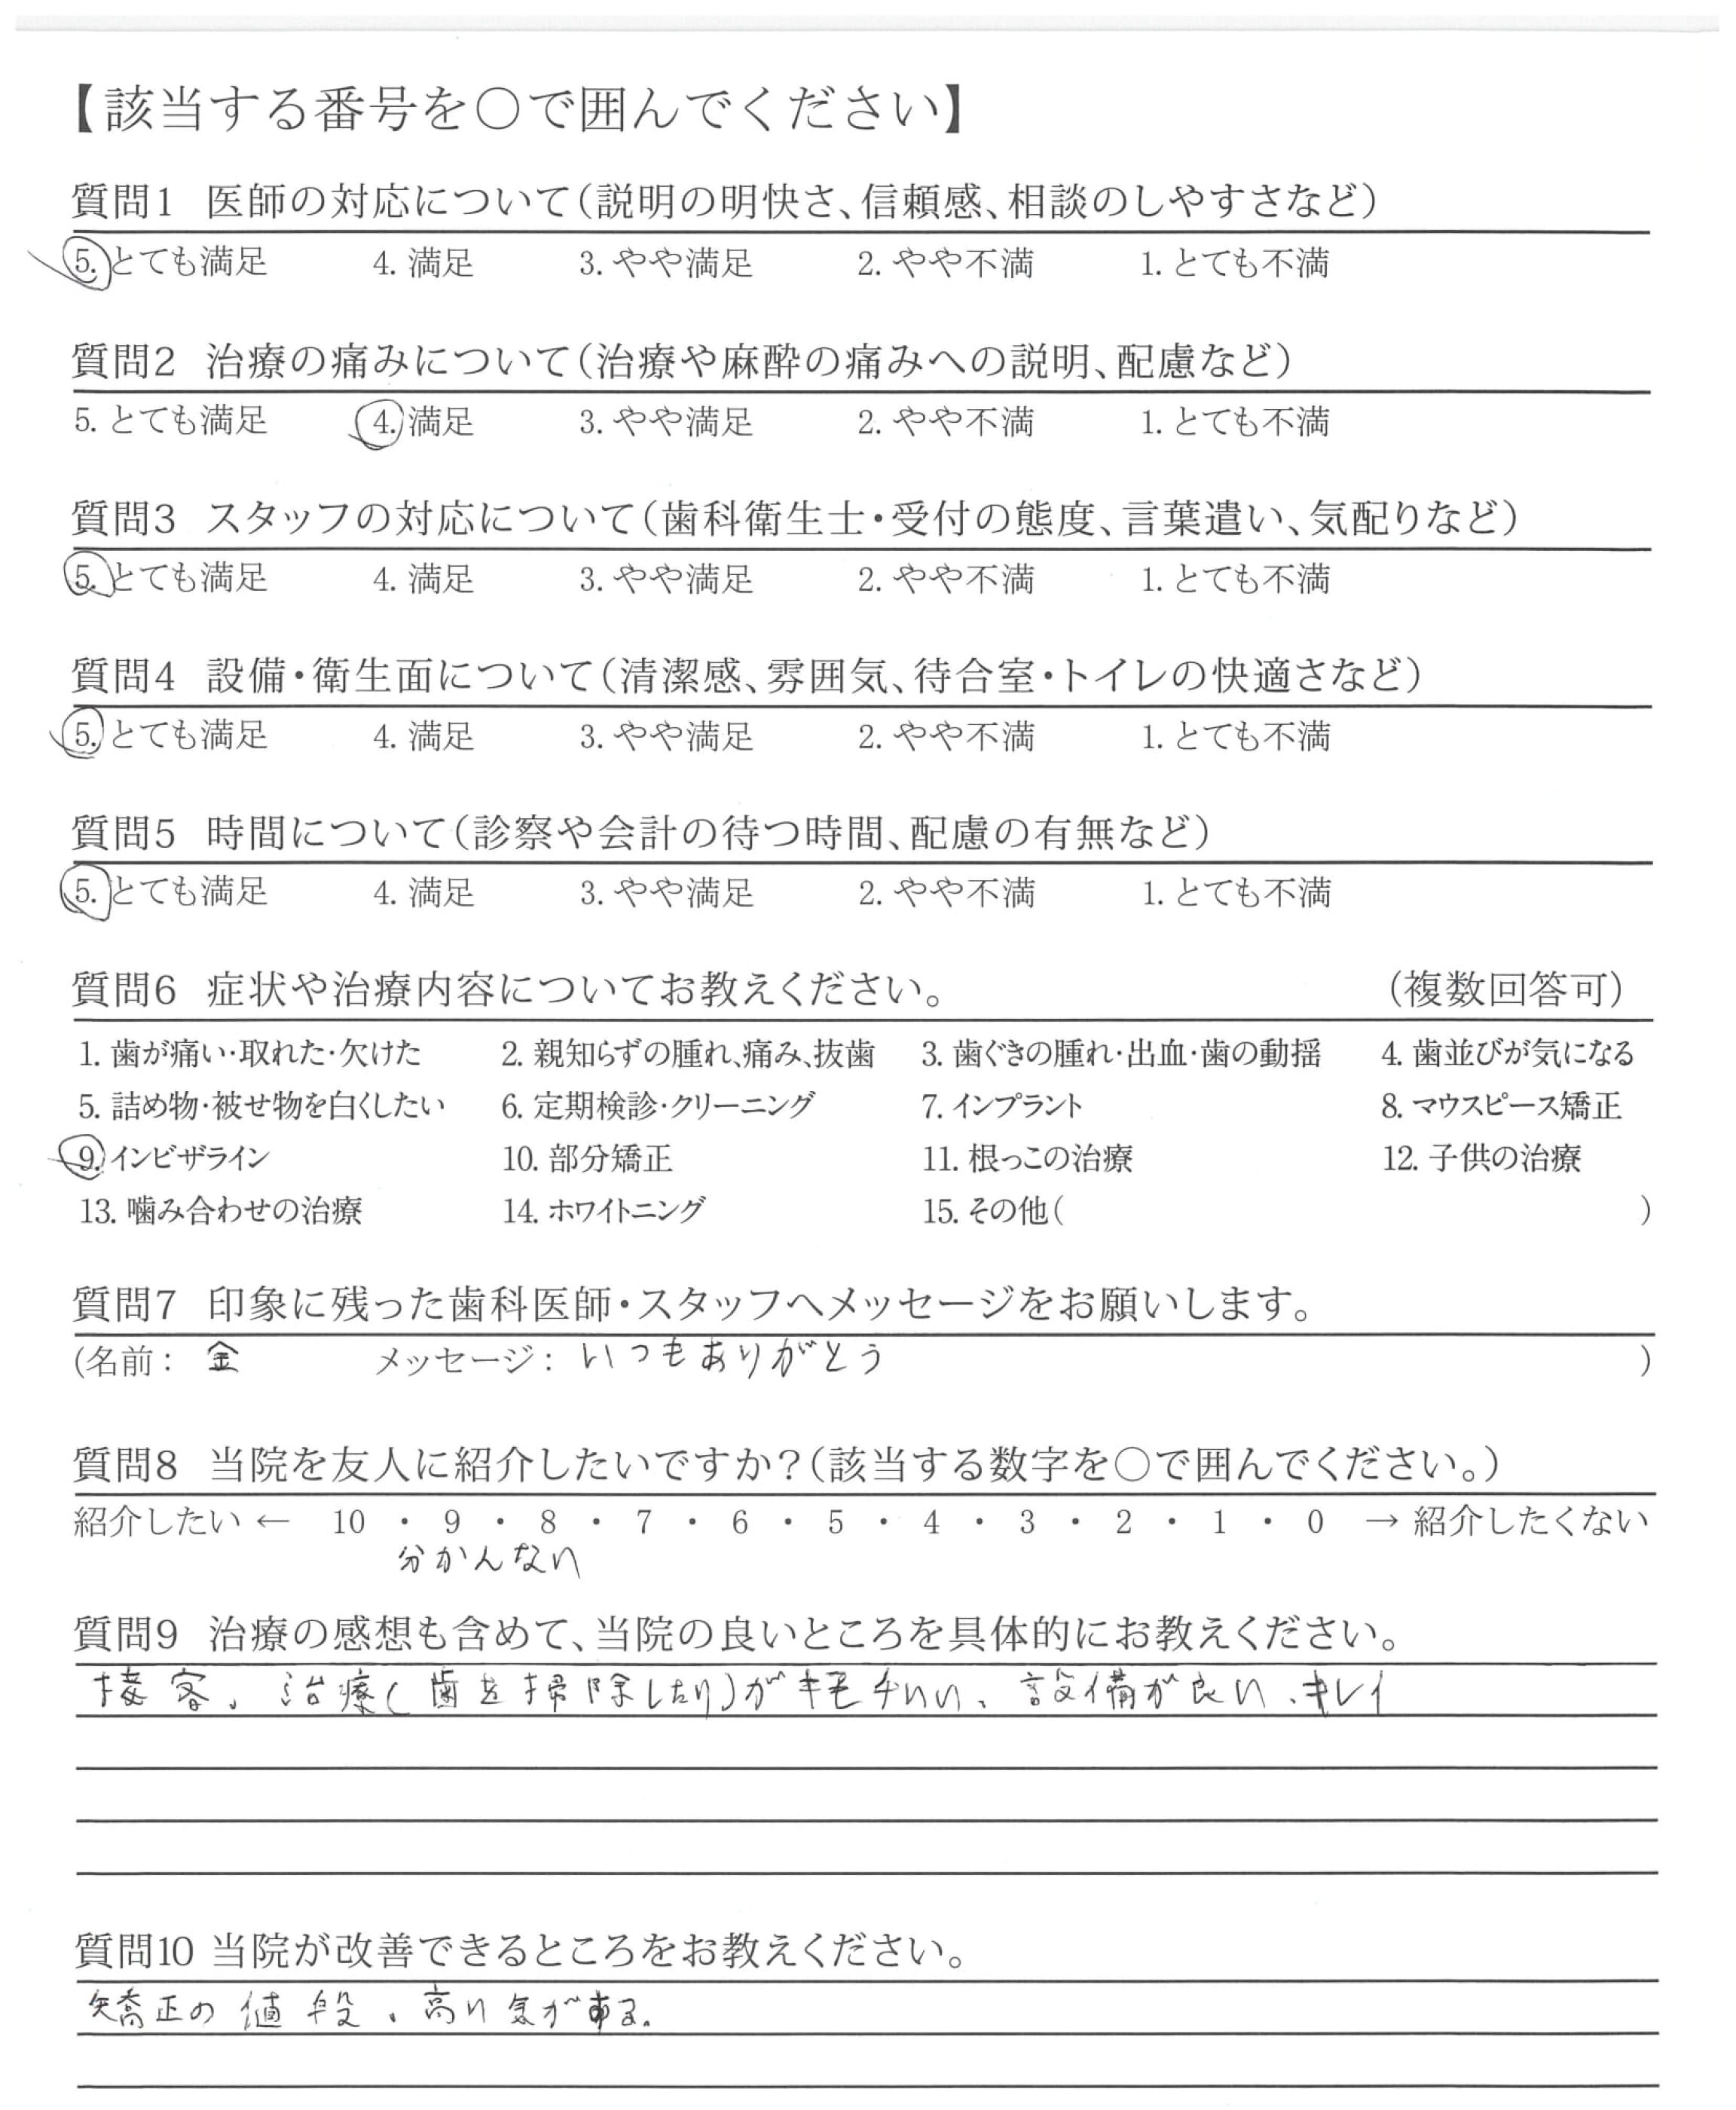 【該当する番号を○で囲んでください】
質問1 医師の対応について（説明の明快さ、信頼感、相談のしやすさなど）
5. とても満足 4. 満足 3. やや満足 2. やや不満 1. とても不満
質問2 治療の痛みについて（治療や麻酔の痛みへの説明、配慮など）
5. とても満足 4. 満足 3. やや満足 2. やや不満 1. とても不満
質問3 スタッフの対応について（歯科衛生士・受付の態度、言葉遣い、気配りなど）
5. とても満足 4. 満足 3. やや満足 2. やや不満 1. とても不満
質問4 設備・衛生面について（清潔感、雰囲気、待合室・トイレの快適さなど）
5. とても満足 4. 満足 3. やや満足 2. やや不満 1. とても不満
質問5 時間について（診察や会計の待つ時間、配慮の有無など）
5. とても満足 4. 満足 3. やや満足 2. やや不満 1. とても不満
質問6 症状や治療内容についてお教えください。 （複数回答可）
1. 歯が痛い・取れた・欠けた 2. 親知らずの腫れ、痛み、抜歯 3. 歯ぐきの腫れ・出血・歯の動揺 4. 歯並びが気になる
5. 詰め物・被せ物を白くしたい 6. 定期検診・クリーニング 7. インプラント 8. マウスピース矯正
9. インビザライン 10. 部分矯正 11. 根っこの治療 12. 子供の治療
13. 噛み合わせの治療 14. ホワイトニング 15. その他（ ）
質問7 印象に残った歯科医師・スタッフへメッセージをお願いします。
(名前： 金 メッセージ： いつもありがとう ）
質問8 当院を友人に紹介したいですか？（該当する数字を○で囲んでください。）
紹介したい ← 10 ・ 9 ・ 8 ・ 7 ・ 6 ・ 5 ・ 4 ・ 3 ・ 2 ・ 1 ・ 0 → 紹介したくない
分かんない
質問9 治療の感想も含めて、当院の良いところを具体的にお教えください。
接客、治療（歯を掃除したり）がキモチいい、設備が良い、キレイ
質問10 当院が改善できるところをお教えください。
矯正の値段、高い気がする。